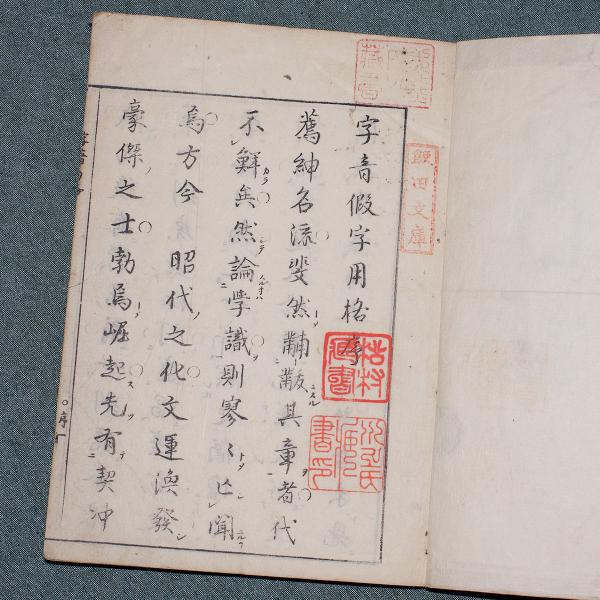 字音假字用格序
薦紳名流斐然黼黻其章者代
不鮮矣然論學識則寥〻亡聞
焉方今昭代之化文運渙發
豪傑之士勃焉崛起先有契沖
飯田文庫
枯村
藏書
序